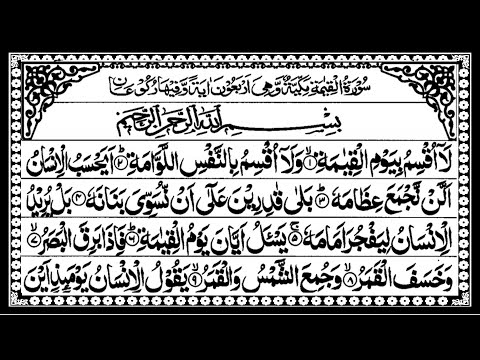 سُوْرَةُ الْقِيٰمَةِ مَكِّيَّةٌ وَّهِيَ اَرْبَعُوْنَ اٰيَةً وَّفِيْهَا رُكُوْعَانِ
بِسْمِ اللّٰهِ الرَّحْمٰنِ الرَّحِيْمِ
لَاۤ اُقْسِمُ بِيَوْمِ الْقِيٰمَةِ ۙ﴿۱﴾ وَلَاۤ اُقْسِمُ بِالنَّفْسِ اللَّوَّامَةِ ؕ﴿۲﴾ اَيَحْسَبُ الْاِنْسَانُ
اَلَّنْ نَّجْمَعَ عِظَامَهٗ ؕ﴿۳﴾ بَلٰى قٰدِرِيْنَ عَلٰۤى اَنْ نُّسَوِّيَ بَنَانَهٗ ﴿۴﴾ بَلْ يُرِيْدُ
الْاِنْسَانُ لِيَفْجُرَ اَمَامَهٗ ۚ﴿۵﴾ يَسْئَلُ اَيَّانَ يَوْمُ الْقِيٰمَةِ ؕ﴿۶﴾ فَاِذَا بَرِقَ الْبَصَرُ ۙ﴿۷﴾
وَخَسَفَ الْقَمَرُ ۙ﴿۸﴾ وَجُمِعَ الشَّمْسُ وَالْقَمَرُ ۙ﴿۹﴾ يَقُوْلُ الْاِنْسَانُ يَوْمَئِذٍ اَيْنَ